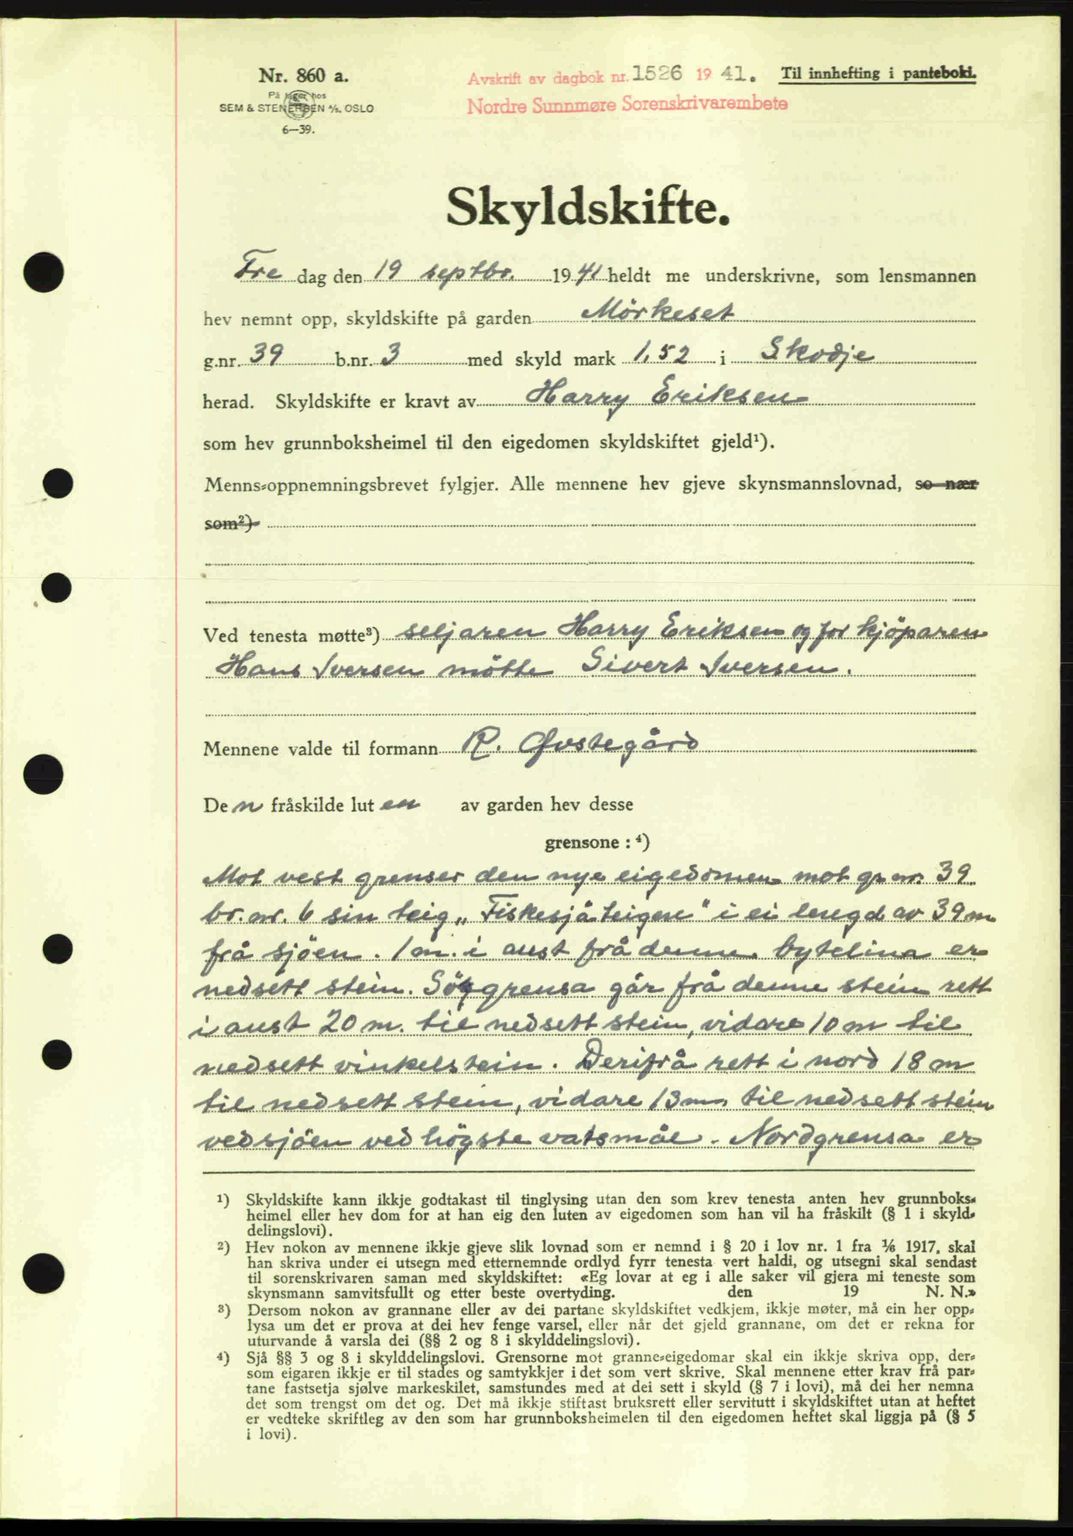 Nr. 860 a.
På lager hos
SEM & STENERSEN A/S. OSLO
6—39.
Avskrift av dagbok nr. 1526 1941.
Nordre Sunnmøre Sorenskrivarembete
Til innhefting i pantebok.
Skyldskifte.
Fre dag den 19 septbr. 1941 heldt me underskrivne, som lensmannen
hev nemnt opp, skyldskifte på garden Mörkeset
g.nr. 39 b.nr. 3 med skyld mark 1,52 i Skodje
herad. Skyldskifte er kravt av Harry Eriksen
som hev grunnboksheimel til den eigedomen skyldskiftet gjeld¹).
Menns-oppnemningsbrevet fylgjer. Alle mennene hev gjeve skynsmannslovnad, so nær
som²)
Ved tenesta møtte³) seljaren Harry Eriksen og for kjöparen
Hans Iversen mötte Sivert Iversen.
Mennene valde til formann R. Øvstegård
Den fråskilde luten av garden hev desse
grensone : ⁴)
Mot vest grenser den nye eigedomen mot gr. nr. 39
br. nr. 6 sin teig „Fiskesjåteigen" i ei lengd av 39 m
frå sjöen. 1 m. i aust frå denne bytelina er
nedsett stein. Sörgrensa går frå denne stein rett
i aust 20 m. til nedsett stein, vidare 10 m til
nedsett vinkelstein. Derifrå rett i nord 18 m
til nedsett stein, vidare 13 m, til nedsett stein
ved sjöen ved högste vatsmål. Nordgrensa er
¹) Skyldskifte kann ikkje godtakast til tinglysing utan den som krev tenesta anten hev grunnboks-
heimel eller hev dom for at han eig den luten av eigedomen som han vil ha fråskilt (§ 1 i skyld-
delingslovi).
²) Hev nokon av mennene ikkje gjeve slik lovnad som er nemnd i § 20 i lov nr. 1 fra 1/6 1917, skal
han skriva under ei utsegn med etternemnde ordlyd fyrr tenesta vert haldi, og utsegni skal sendast
til sorenskrivaren saman med skyldskiftet: «Eg lovar at eg i alle saker vil gjera mi teneste som
skynsmann samvitsfullt og etter beste overtyding. den 19 N. N.»
³) Dersom nokon av grannane eller av dei partane skyldskiftet vedkjem, ikkje møter, må ein her opp-
lysa um det er prova at dei hev fenge varsel, eller når det gjeld grannane, om det er rekna for
uturvande å varsla dei (§§ 2 og 8 i skylddelingslovi).
⁴) Sjå §§ 3 og 8 i skylddelingslovi. Grensorne mot granne-eigedomar skal ein ikkje skriva opp, der-
som eigaren ikkje er til stades og samtykkjer i det som vert skrive. Skal mennene etter krav frå par-
tane fastsetja sjølve markeskilet, samstundes med at dei sett i skyld (§ 7 i lovi), må dei her nemna
det som trengst om det og. Det må ikkje stiftast bruksrett eller servitutt i skyldskiftet utan at heftet
er vedteke skriftleg av den som har grunnboksheimelen til den eigedomen heftet skal liggja på (§ 5
i lovi).